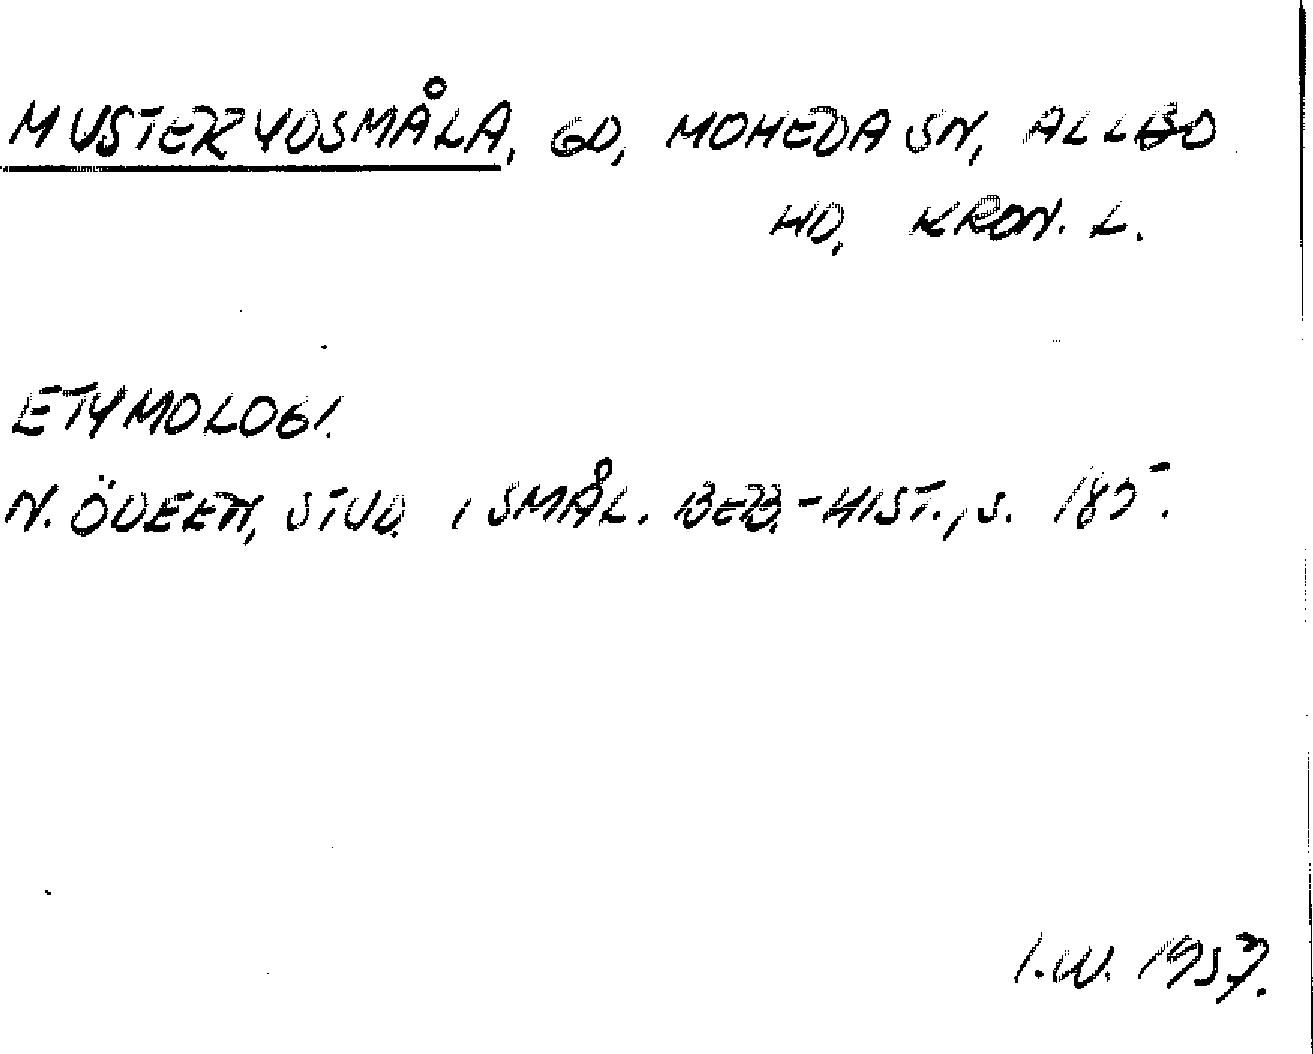 MUSTERYDSMÅLA, GD, MOHEDA SN, ALLBO
HD, KRON. L.
ETYMOLOGI.
N. ÖDEEN, STUD. I SMÅL. BEB.-HIST., S. 185.
I.W. 1957.